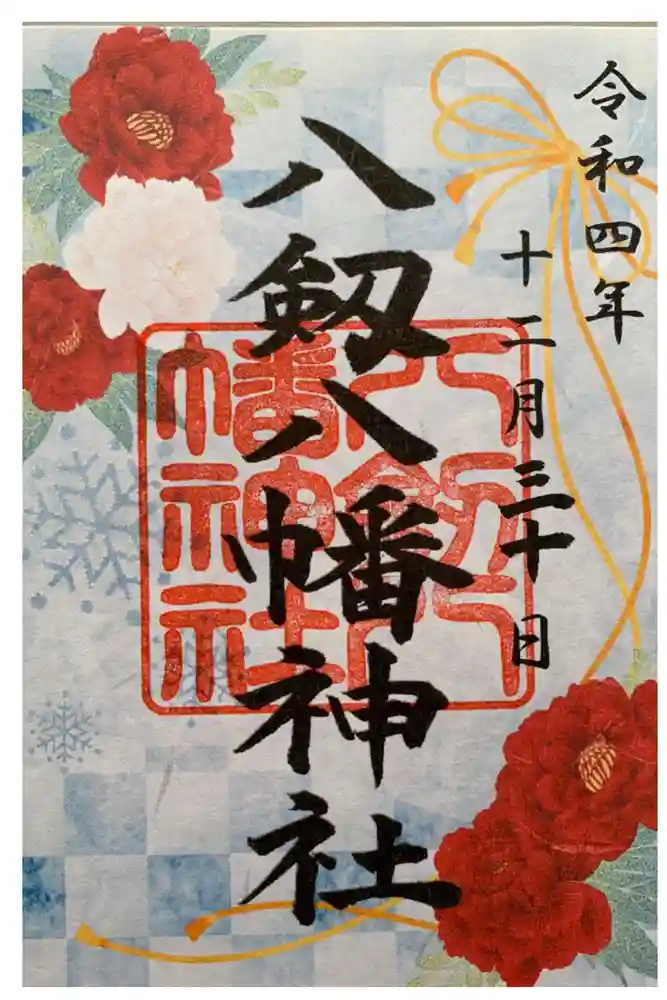 令和四年
十二月三十日
八剱八幡神社
八剱八
幡神社